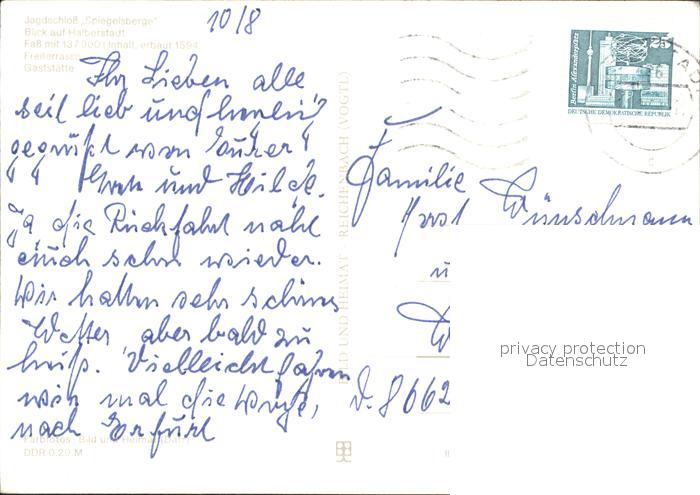 10/8
Jagdschloß „Spiegelsberge"
Blick auf Halberstadt
Faß mit 137 000 l Inhalt, erbaut 1594
Freiterrasse
Gaststätte
Ihr Lieben alle
seit lieb und herzlich
gegrüßt von Eurer
und Hilde.
Ja die Rückfahrt naht
auch schon wieder.
Wir hatten sehr schönes
Wetter aber bald zu
heiß. Vielleicht fahren
wir mal die Woche,
nach Erfurt
Farbfotos: Bild und Heimat
DDR 0,20 M
BILD UND HEIMAT REICHENBACH (VOGTL)
25
Berlin, Alexanderplatz
DEUTSCHE DEMOKRATISCHE REPUBLIK
Familie
Wünschmann
u
8662
privacy protection
Datenschutz